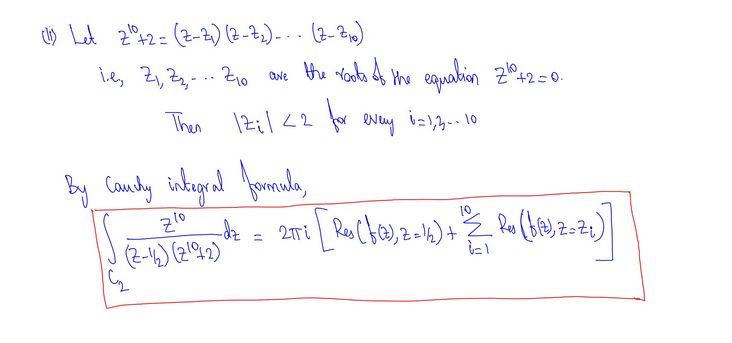 (ii) Let z^10+2 = (z-z_1)(z-z_2)-...(z-z_10)
i.e, z_1, z_2, -... z_10 are the roots of the equation z^10+2=0.
Then |z_i| < 2 for every i=1,2,-.. 10
By Cauchy integral formula,
∫_{C_2} z^10/((z-1/2)(z^10+2)) dz = 2πi [Res(f(z), z=1/2) + ∑_{i=1}^{10} Res(f(z), z=z_i)]